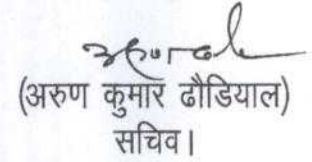 (अरुण कुमार ढौडियाल)
सचिव।